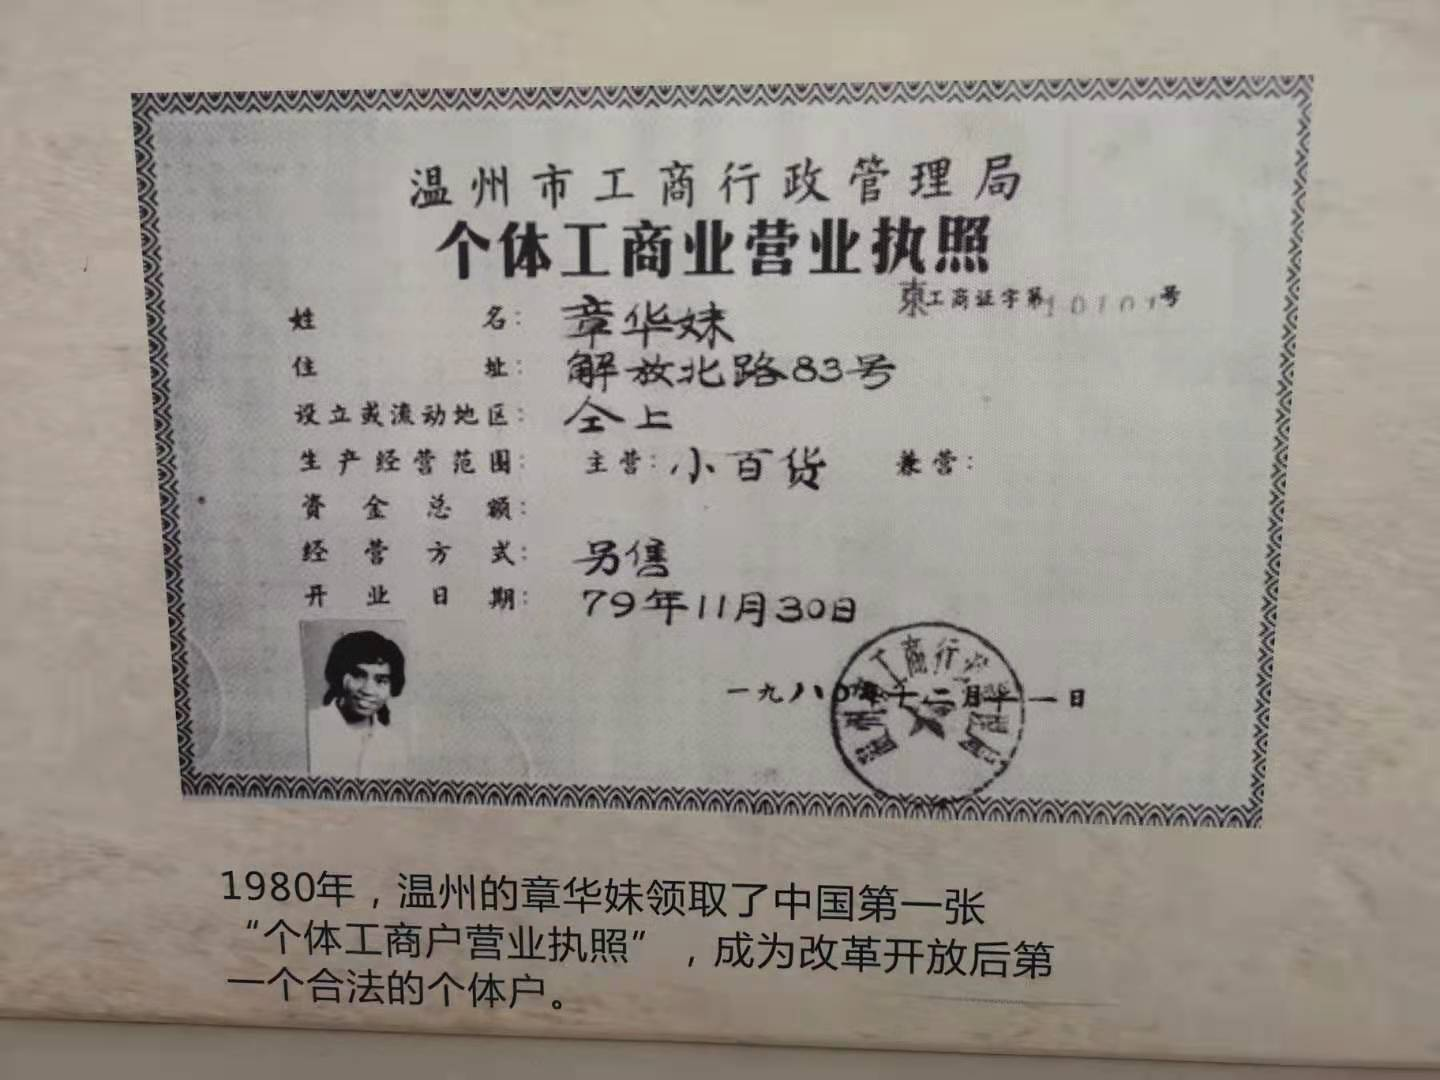 温州市工商行政管理局
个体工商业营业执照
东工商证字第10101号
姓名：章华妹
住址：解放北路83号
设立或流动地区：仝上
生产经营范围：主营：小百货 兼营：
资金总额：
经营方式：另售
开业日期：79年11月30日
一九八〇年十二月十一日
温州市工商行政管理局
1980年，温州的章华妹领取了中国第一张
“个体工商户营业执照”，成为改革开放后第
一个合法的个体户。